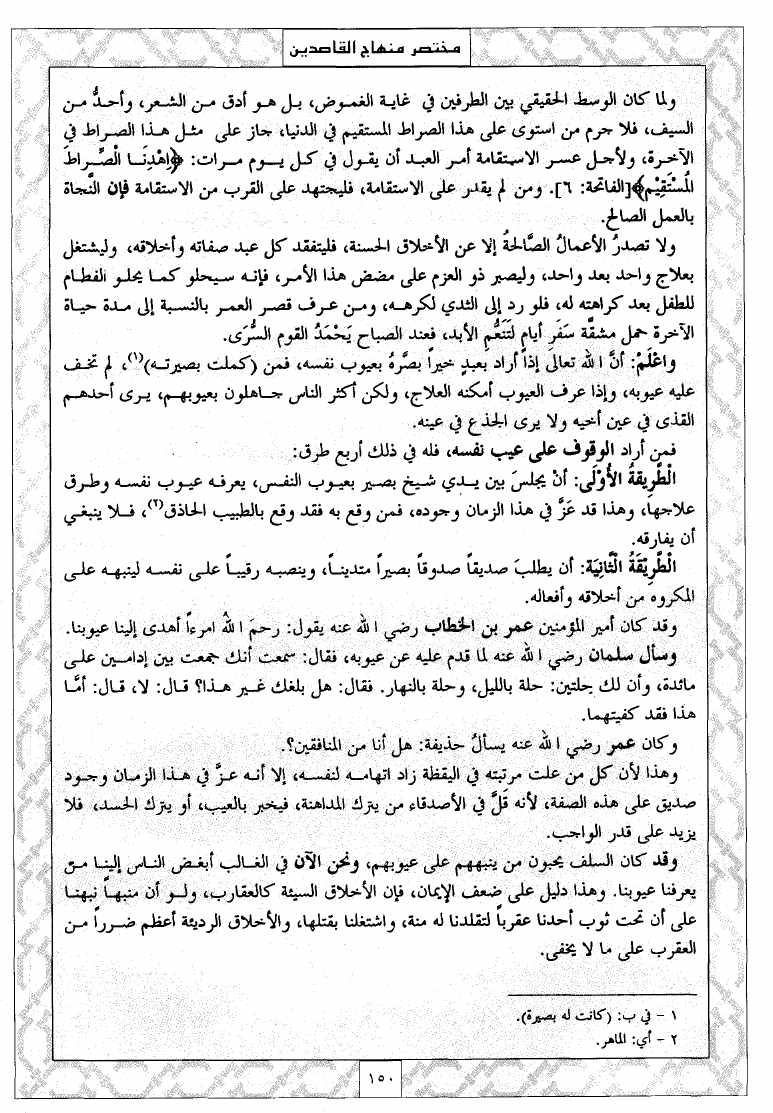 مختصر منهاج القاصدين
ولما كان الوسط الحقيقي بين الطرفين في غاية الغموض، بل هو أدق من الشعر، وأحدُّ من
السيف، فلا جرم من استوى على هذا الصراط المستقيم في الدنيا، جاز على مثل هذا الصراط في
الآخرة، ولأجل عسر الاستقامة أمر العبد أن يقول في كل يوم مرات: ﴿اهْدِنَا الْصِّرَاطَ
الْمُسْتَقِيْمَ﴾[الفاتحة: ٦]. ومن لم يقدر على الاستقامة، فليجتهد على القرب من الاستقامة فإن النَّجاة
بالعمل الصالح.
ولا تصدرُ الأعمالُ الصَّالحةُ إلا عن الأخلاق الحسنة، فليتفقد كل عبد صفاته وأخلاقه، وليشتغل
بعلاج واحد بعد واحد، وليصبر ذو العزم على مضض هذا الأمر، فإنه سيحلو كما يحلو الفطام
للطفل بعد كراهته له، فلو رد إلى الثدي لكرهه، ومن عرف قصر العمر بالنسبة إلى مدة حياة
الآخرة حمل مشقَّة سَفَرِ أيام لِتَنَعُّمِ الأبد، فعند الصباح يَحْمَدُ القوم السُّرَى.
واعْلَمْ: أنَّ الله تعالى إذا أراد بعبدٍ خيراً بصَّرهُ بعيوب نفسه، فمن (كملت بصيرته)(١)، لم تخف
عليه عيوبه، وإذا عرف العيوب أمكنه العلاج، ولكن أكثر الناس جاهلون بعيوبهم، يرى أحدهم
القذى في عين أخيه ولا يرى الجذع في عينه.
فمن أراد الوقوف على عيب نفسه، فله في ذلك أربع طرق:
الْطَّرِيقةُ الأُوْلَى: أنْ يجلسَ بين يدي شيخ بصير بعيوب النفس، يعرفه عيوب نفسه وطرق
علاجها، وهذا قد عَزَّ في هذا الزمان وجوده، فمن وقع به فقد وقع بالطبيب الحاذق(٢)، فلا ينبغي
أن يفارقه.
الْطَّرِيْقَةُ الْثَّانِيَة: أن يطلبَ صديقاً صدوقاً بصيراً متديناً، وينصبه رقيباً على نفسه لينبهه على
المكروه من أخلاقه وأفعاله.
وقد كان أمير المؤمنين عمر بن الخطاب رضي الله عنه يقول: رحمَ اللهُ امرءاً أهدى إلينا عيوبنا.
وسأل سلمان رضي الله عنه لما قدم عليه عن عيوبه، فقال: سمعت أنك جمعت بين إدامين على
مائدة، وأن لك حلتين: حلة بالليل، وحلة بالنهار. فقال: هل بلغك غير هذا؟ قال: لا، قال: أمَّا
هذا فقد كفيتهما.
وكان عمر رضي الله عنه يسألُ حذيفة: هل أنا من المنافقين؟.
وهذا لأن كل من علت مرتبته في اليقظة زاد اتهامه لنفسه، إلا أنه عزَّ في هذا الزمان وجود
صديق على هذه الصفة، لأنه قَلَّ في الأصدقاء من يترك المداهنة، فيخبر بالعيب، أو يترك الحسد، فلا
يزيد على قدر الواجب.
وقد كان السلف يحبون من ينبههم على عيوبهم، ونحن الآن في الغالب أبغض الناس إلينا من
يعرفنا عيوبنا. وهذا دليل على ضعف الإيمان، فإن الأخلاق السيئة كالعقارب، ولو أن منبهاً نبهنا
على أن تحت ثوب أحدنا عقرباً لتقلدنا له منة، واشتغلنا بقتلها، والأخلاق الرديئة أعظم ضرراً من
العقرب على ما لا يخفى.
١ - في ب: (كانت له بصيرة).
٢ - أي: الماهر.
١٥٠